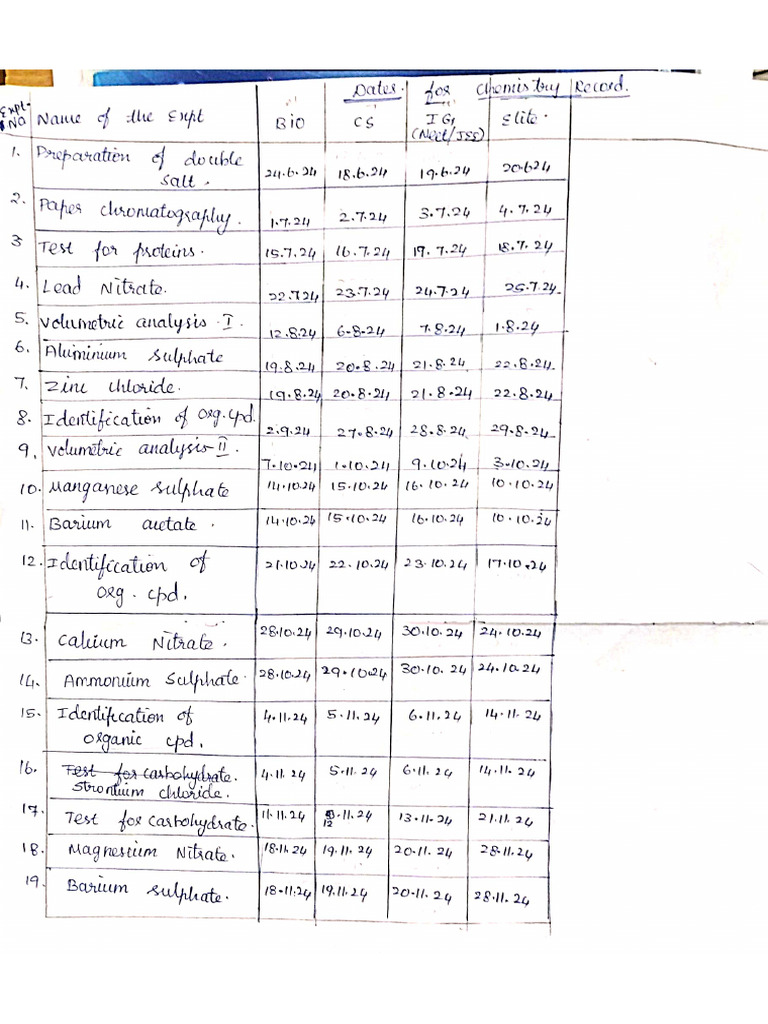 Dates for Chemistry Record.
Expt. No Name of the Expt Bio CS IG1 (Neet/JEE) Elite.
1. Preparation of double salt. 24.6.24 18.6.24 19.6.24 20.6.24
2. Paper chromatography. 1.7.24 2.7.24 3.7.24 4.7.24
3 Test for proteins. 15.7.24 16.7.24 19.7.24 18.7.24
4. Lead Nitrate. 22.7.24 23.7.24 24.7.24 25.7.24
5. Volumetric analysis. I. 12.8.24 6.8.24 7.8.24 1.8.24
6. Aluminium sulphate 19.8.24 20.8.24 21.8.24 22.8.24
7. Zinc chloride. 19.8.24 20.8.24 21.8.24 22.8.24
8. Identification of Org.cpd. 2.9.24 27.8.24 28.8.24 29.8.24
9. Volumetric analysis-II. 7.10.24 1.10.24 9.10.24 3.10.24
10. Manganese sulphate 14.10.24 15.10.24 16.10.24 10.10.24
11. Barium acetate. 14.10.24 15.10.24 16.10.24 10.10.24
12. Identification of org. cpd. 21.10.24 22.10.24 23.10.24 17.10.24
13. Calcium Nitrate. 28.10.24 29.10.24 30.10.24 24.10.24
14. Ammonium sulphate. 28.10.24 29.10.24 30.10.24 24.10.24
15. Identification of organic cpd. 4.11.24 5.11.24 6.11.24 14.11.24
16. Test for carbohydrate. Strontium chloride. 4.11.24 5.11.24 6.11.24 14.11.24
17. Test for carbohydrate. 11.11.24 12.11.24 13.11.24 21.11.24
18. Magnesium Nitrate. 18.11.24 19.11.24 20.11.24 28.11.24
19. Barium sulphate. 18.11.24 19.11.24 20.11.24 28.11.24